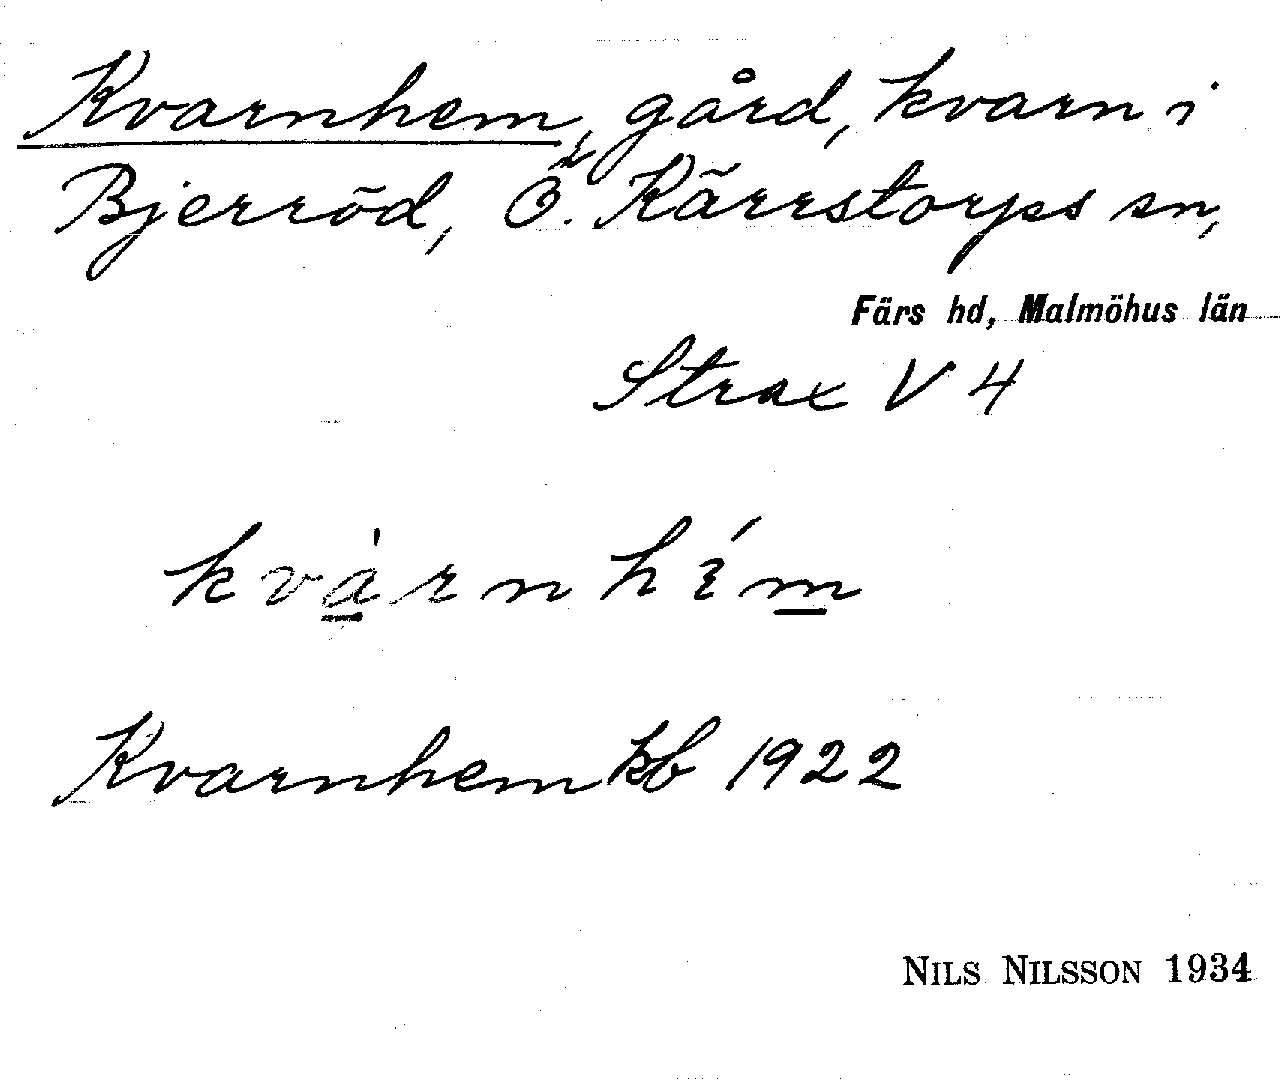 Kvarnhem, gård, kvarn i
Bjerröd, Ö. Kärrstorps sn,
Färs hd, Malmöhus län
Strax V 4
kvàrnhím
Kvarnhem kb 1922
NILS NILSSON 1934